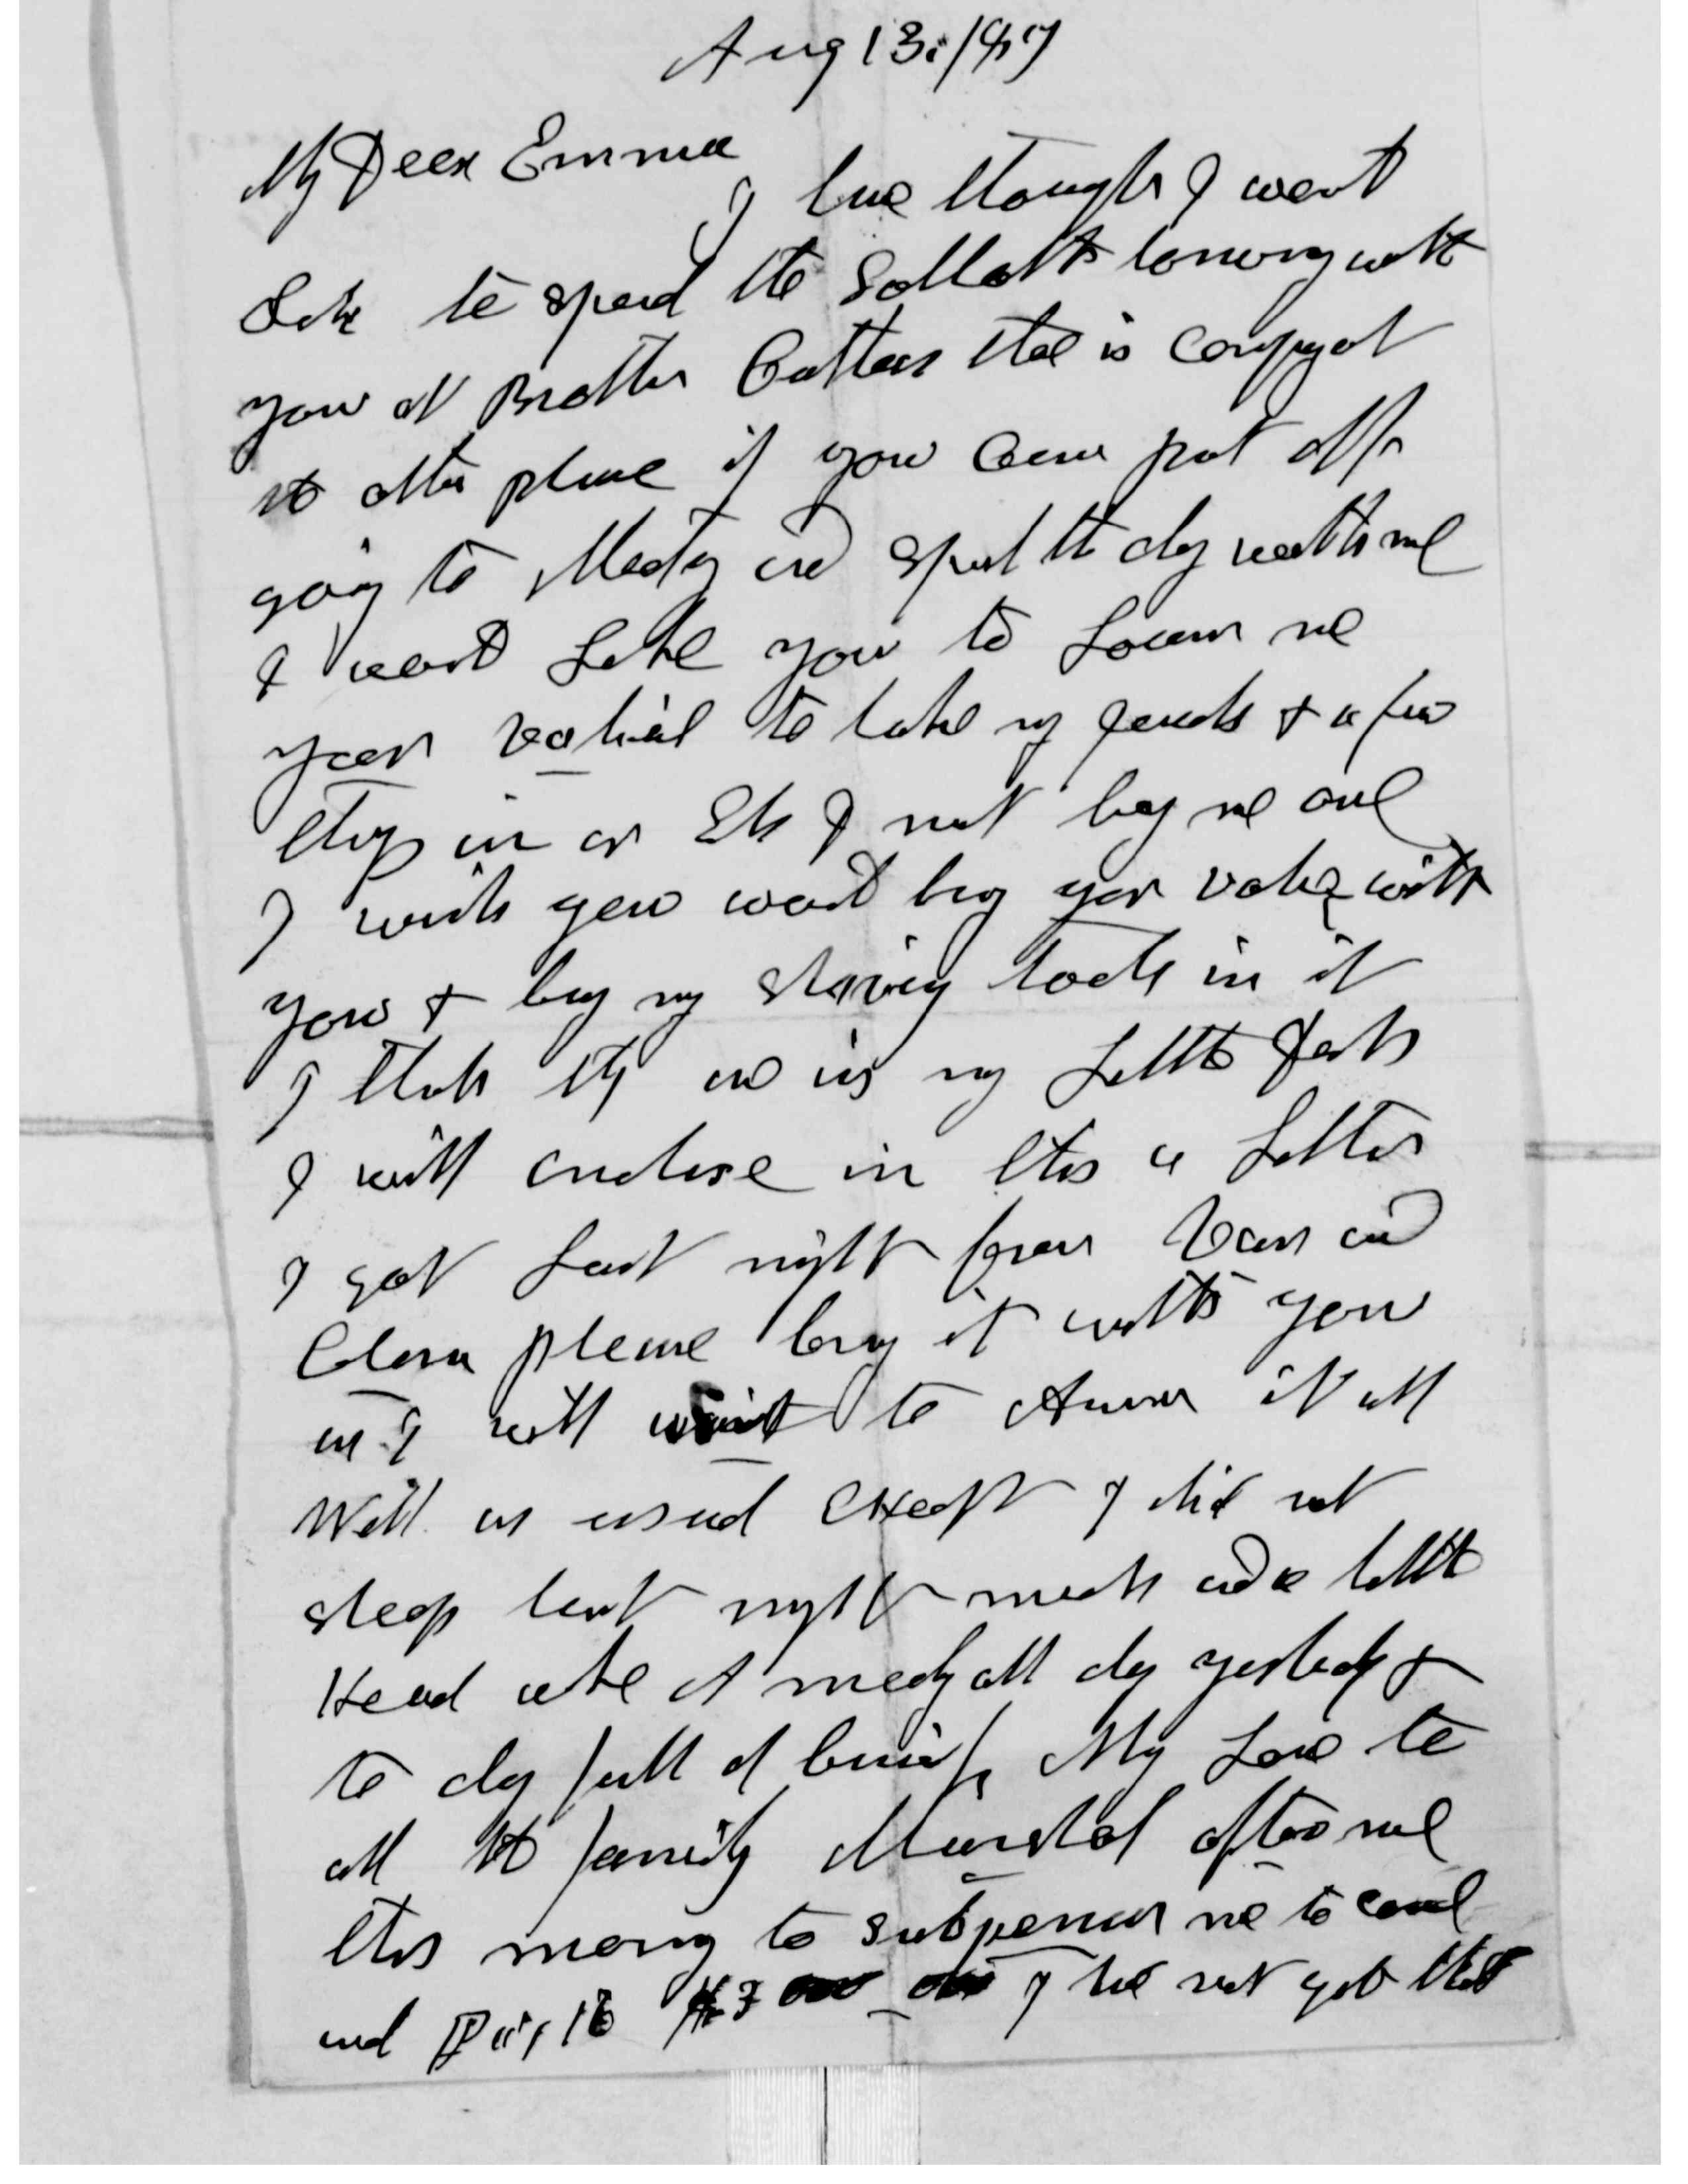 Aug 13:/97
My Dear Emma
I have thought I want
Like to spend the Sabbath coming with
you at Brother
at other place if you can put off
going to Meeting and spend the day with me
I want Like you to Loan me
your valise to take my & a few
things in or Els I must buy me one
I wish you would bring your valise with
you & bring my shaving tools in it
I think they are in my Little
I will enclose in this a Letter
I got Last night from and
Clara please bring it with you
as I will want to Answer it all
Well as usual Except I did not
sleep last night much and a little
Head ache at meeting all day yesterday &
to day full of business My Love to
all the family Marshal after me
this morning to subpenar me to
and I have not got that